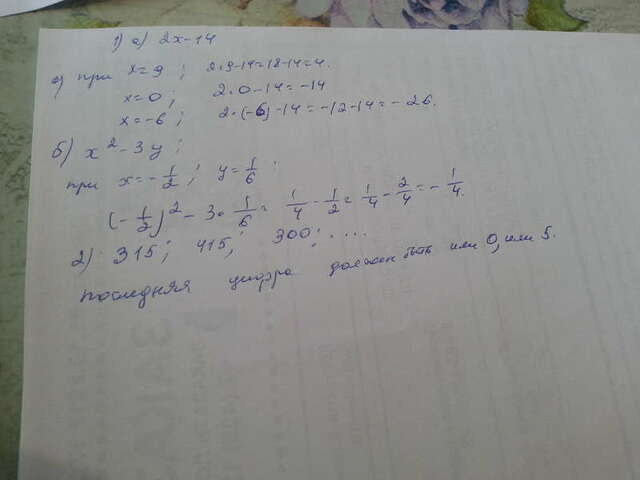 1) а) 2x-14
а) при x=9; 2·9-14=18-14=4.
x=0; 2·0-14=-14
x=-6; 2·(-6)-14=-12-14=-26.
б) x²-3y;
при x=-1/2; y=1/6
(-1/2)²-3·1/6=1/4-1/2=1/4-2/4=-1/4.
2) 315; 415; 300; ....
последняя цифра должен быть или 0, или 5.